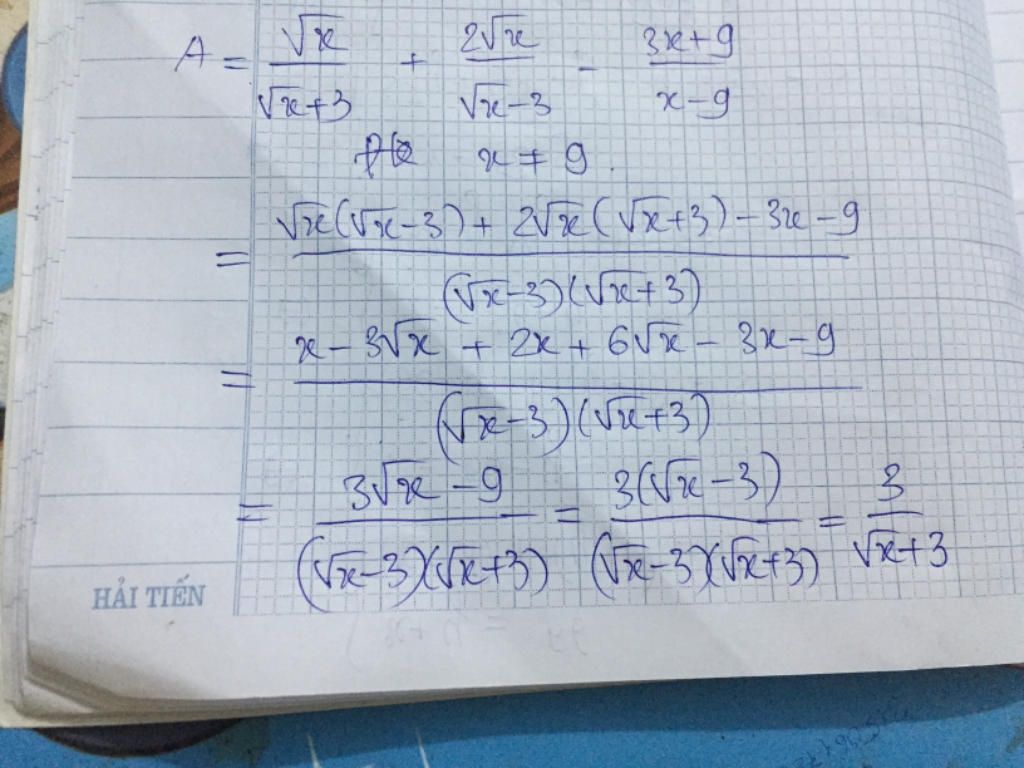 A = √x/(√x+3) + 2√x/(√x-3) - (3x+9)/(x-9)
x ≠ 9.
= (√x(√x-3) + 2√x(√x+3) - 3x - 9)/((√x-3)(√x+3))
= (x - 3√x + 2x + 6√x - 3x - 9)/((√x-3)(√x+3))
= (3√x - 9)/((√x-3)(√x+3)) = 3(√x-3)/((√x-3)(√x+3)) = 3/(√x+3)
HẢI TIẾN